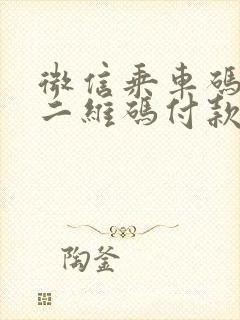 微信乘車碼
二維碼付款
陶釜